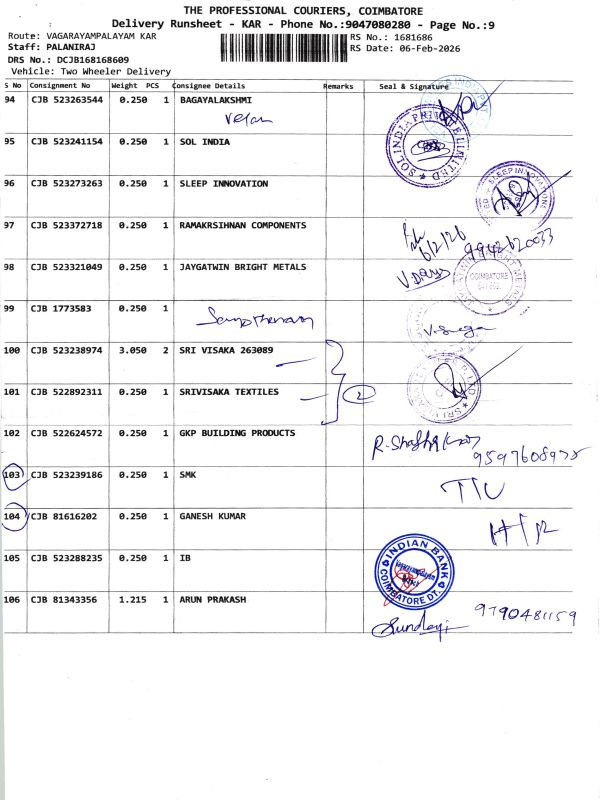 THE PROFESSIONAL COURIERS, COIMBATORE
Delivery Runsheet - KAR - Phone No.:9047080280 - Page No.:9
Route: VAGARAYAMPALAYAM KAR
RS No.: 1681686
Staff: PALANIRAJ
RS Date: 06-Feb-2026
DRS No.: DCJB168168609
Vehicle: Two Wheeler Delivery
S No Consignment No Weight PCS Consignee Details Remarks Seal & Signature
94 CJB 523263544 0.250 1 BAGAYALAKSHMI
95 CJB 523241154 0.250 1 SOL INDIA
SOL INDIA PRIVATE LIMITED
96 CJB 523273263 0.250 1 SLEEP INNOVATION
97 CJB 523372718 0.250 1 RAMAKRISHNAN COMPONENTS
6/2/26 9942620033
98 CJB 523321049 0.250 1 JAYGATWIN BRIGHT METALS
COIMBATORE
99 CJB 1773583 0.250 1
100 CJB 523238974 3.050 2 SRI VISAKA 263089
101 CJB 522892311 0.250 1 SRIVISAKA TEXTILES
2
102 CJB 522624572 0.250 1 GKP BUILDING PRODUCTS
103 CJB 523239186 0.250 1 SMK
104 CJB 81616202 0.250 1 GANESH KUMAR
105 CJB 523288235 0.250 1 IB
INDIAN BANK
COIMBATORE DT.
106 CJB 81343356 1.215 1 ARUN PRAKASH
9790481159